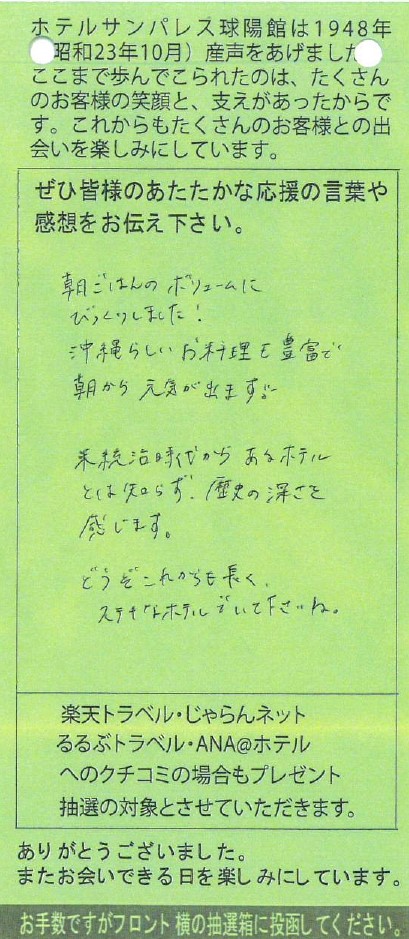 ホテルサンパレス球陽館は1948年
昭和23年10月）産声をあげました
ここまで歩んでこられたのは、たくさん
のお客様の笑顔と、支えがあったからで
す。これからもたくさんのお客様との出
会いを楽しみにしています。
ぜひ皆様のあたたかな応援の言葉や
感想をお伝え下さい。
朝ごはんの ボリュームに
びっくりしました！
沖縄らしい お料理も豊富で
朝から 元気が出ます
米統治時代から あるホテル
とは知らず、歴史の深さを
感じます。
どうぞこれからも長く、
ステキなホテルでいて下さいね。
楽天トラベル・じゃらんネット
るるぶトラベル・ANA@ホテル
へのクチコミの場合もプレゼント
抽選の対象とさせていただきます。
ありがとうございました。
またお会いできる日を楽しみにしています。
お手数ですがフロント横の抽選箱に投函してください。